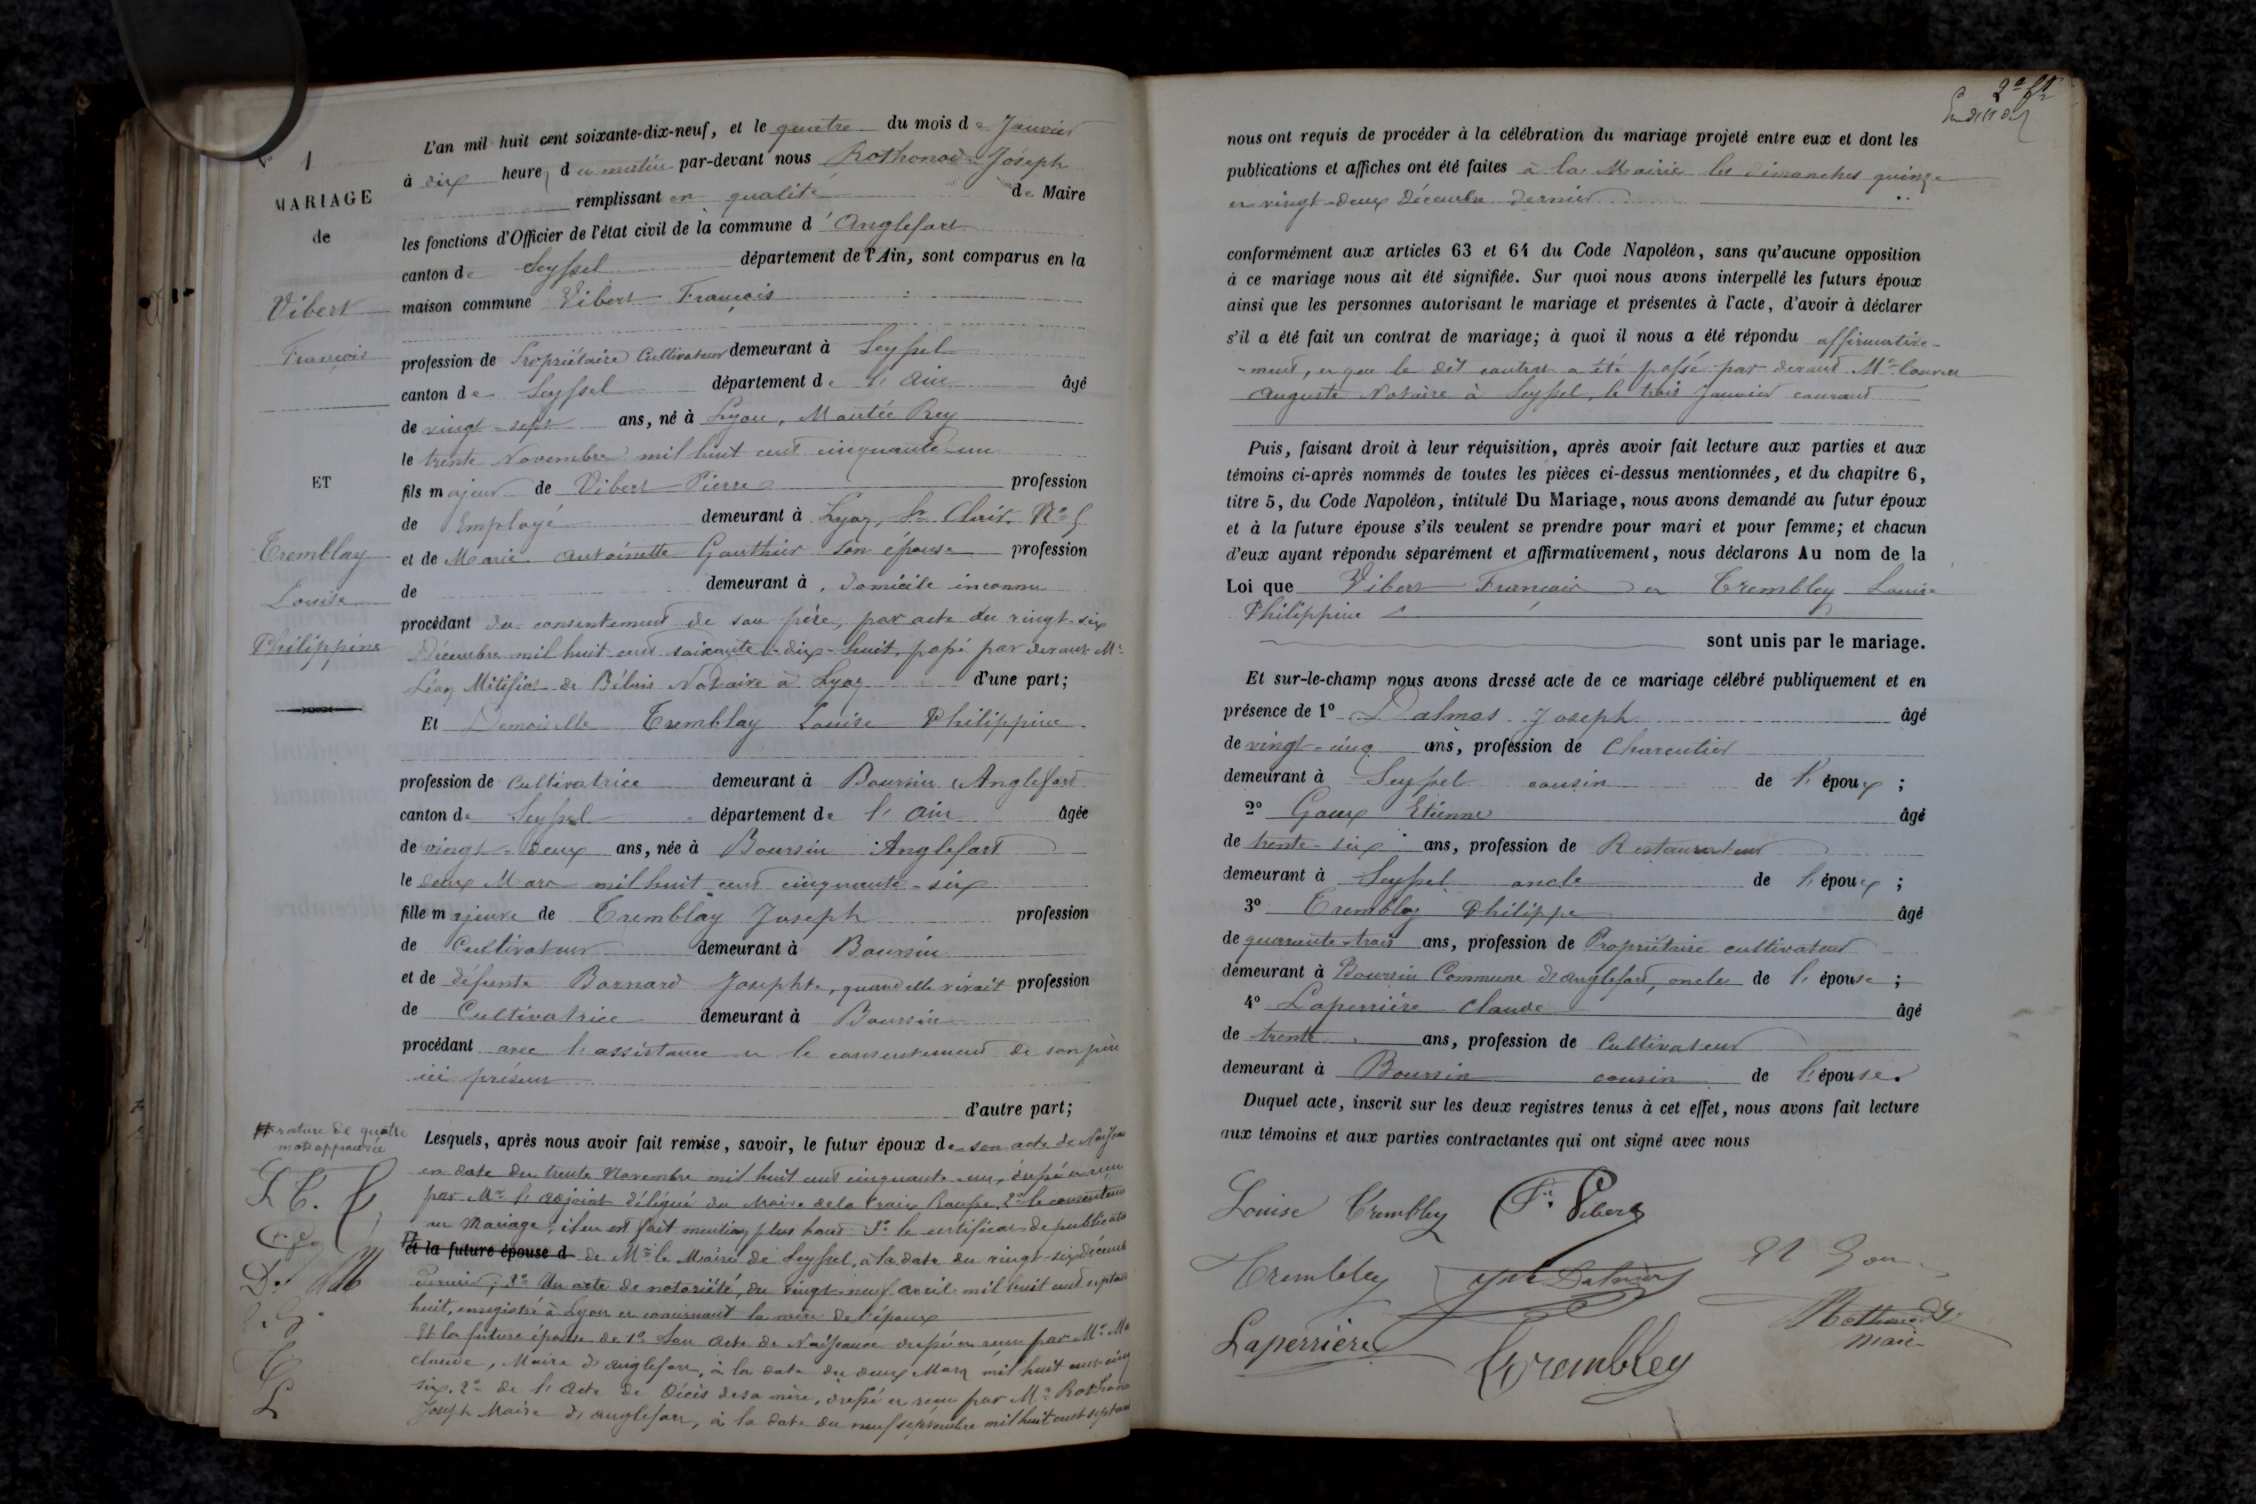 1
MARIAGE
de
Vibert
François
ET
Tremblay
Louise
Philippine
L'an mil huit cent soixante-dix-neuf, et le quatre du mois de Janvier
à dix heures du matin par-devant nous Rothonod Joseph
remplissant en qualité de Maire
les fonctions d'Officier de l'état civil de la commune d'Anglefort
canton de Seyssel département de l'Ain, sont comparus en la
maison commune Vibert François
profession de Propriétaire Cultivateur demeurant à Seyssel
canton de Seyssel département de l'Ain âgé
de vingt-sept ans, né à Lyon, Montée Rey
le trente Novembre mil huit cent cinquante-un
fils majeur de Vibert Pierre profession
de Employé demeurant à Lyon, St Clair, No 5
et de Marie Antoinette Gauthier son épouse profession
de demeurant à, domicile inconnu
procédant du consentement de son père, par acte du vingt-six
Décembre mil huit cent soixante-dix-huit, passé par devant Me
Léon Mitifiot de Bélair Notaire à Lyon d'une part;
Et Demoiselle Tremblay Louise Philippine
profession de Cultivatrice demeurant à Boursin, Anglefort
canton de Seyssel département de l'Ain âgée
de vingt-deux ans, née à Boursin Anglefort
le deux Mars mil huit cent cinquante-six
fille majeure de Tremblay Joseph profession
de Cultivateur demeurant à Boursin
et de défunte Bornard Josephte, quand elle vivait profession
de Cultivatrice demeurant à Boursin
procédant avec l'assistance et le consentement de son père
ici présent
d'autre part;
rature de quatre
mots approuvée
L T.
Lesquels, après nous avoir fait remise, savoir, le futur époux de son acte de Naissan
en date du trente Novembre mil huit cent cinquante-un, dressé et reçu
par Mr l'adjoint délégué du Maire de la Croix Rousse, 2° le consentem
au Mariage, il en est fait mention plus haut 3° le certificat de publicati
et la future épouse d de Mr le Maire de Seyssel, à la date du vingt-six décemb
dernier; 4° Un acte de notoriété, du vingt-neuf avril mil huit cent septan
huit, enregistré à Lyon et concernant la mère de l'époux
Et la future épouse de 1° Son acte de Naissance dressé et reçu par Mr
Claude, Maire d'Anglefort, à la date du deux Mars mil huit cent cinq
six, 2° de l'Acte de Décès de sa mère, dressé et reçu par Mr Rothono
Joseph Maire d'Anglefort, à la date du neuf septembre mil huit cent septan
nous ont requis de procéder à la célébration du mariage projeté entre eux et dont les
publications et affiches ont été faites à la Mairie les dimanches quinze
et vingt-deux Décembre dernier
conformément aux articles 63 et 64 du Code Napoléon, sans qu'aucune opposition
à ce mariage nous ait été signifiée. Sur quoi nous avons interpellé les futurs époux
ainsi que les personnes autorisant le mariage et présentes à l'acte, d'avoir à déclarer
s'il a été fait un contrat de mariage; à quoi il nous a été répondu affirmative-
-ment, et que le dit contrat a été passé par devant Me
Auguste Notaire à Seyssel, le trois Janvier courant
Puis, faisant droit à leur réquisition, après avoir fait lecture aux parties et aux
témoins ci-après nommés de toutes les pièces ci-dessus mentionnées, et du chapitre 6,
titre 5, du Code Napoléon, intitulé Du Mariage, nous avons demandé au futur époux
et à la future épouse s'ils veulent se prendre pour mari et pour femme; et chacun
d'eux ayant répondu séparément et affirmativement, nous déclarons Au nom de la
Loi que Vibert François et Trembley Louise
Philippine
sont unis par le mariage.
Et sur-le-champ nous avons dressé acte de ce mariage célébré publiquement et en
présence de 1° Dalmas Joseph âgé
de vingt-cinq ans, profession de Charcutier
demeurant à Seyssel cousin de l'époux;
2° Goux Etienne âgé
de trente-six ans, profession de Restaurateur
demeurant à Seyssel oncle de l'époux;
3° Tremblay Philippe âgé
de quarante-trois ans, profession de Propriétaire cultivateur
demeurant à Boursin Commune d'Anglefort, oncle de l'épouse;
4° Laperrière Claude âgé
de trente ans, profession de Cultivateur
demeurant à Boursin cousin de l'épouse.
Duquel acte, inscrit sur les deux registres tenus à cet effet, nous avons fait lecture
aux témoins et aux parties contractantes qui ont signé avec nous
Louise Trembley Fs Vibert
Trembley
Laperrière
Trembley
Maire